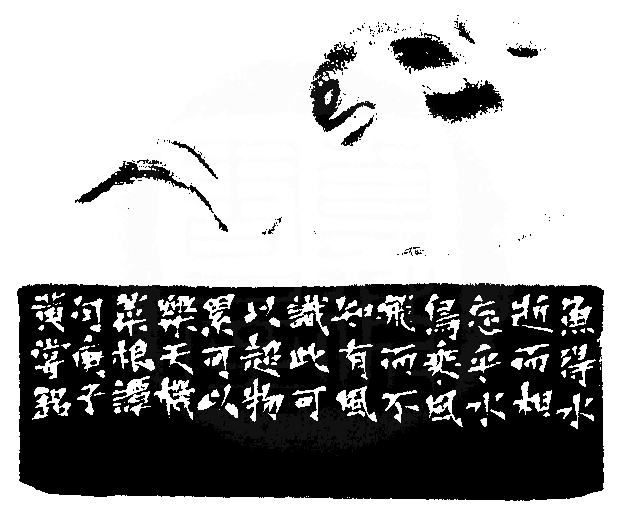 魚得水
逝而相
忘乎水
鳥乘風
飛而不
知有風
識此可
以超物
累可以
樂天機
菜根譚
句庚子
黃嘗銘